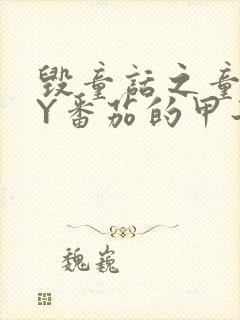 毁童话之童
Y番茄的甲
魏巍